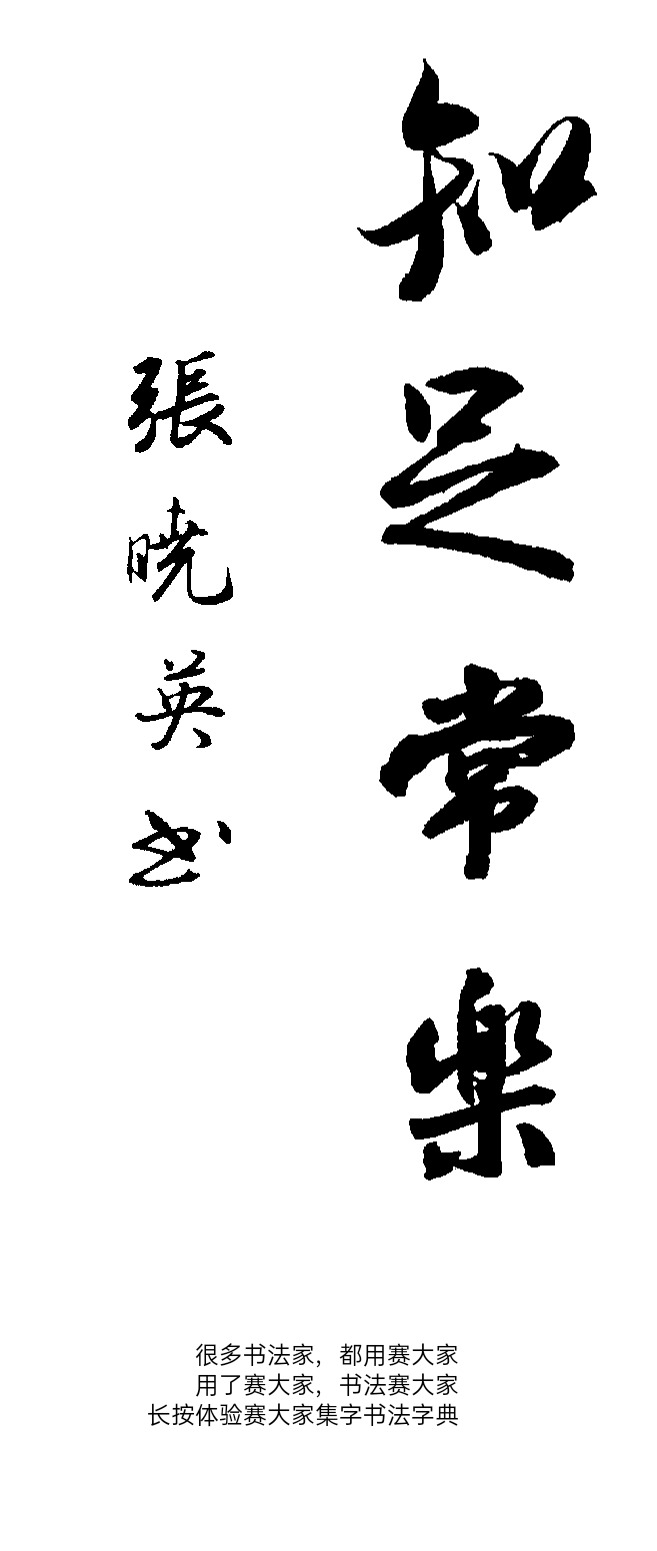 知足常樂
張曉英书
很多书法家，都用赛大家
用了赛大家，书法赛大家
长按体验赛大家集字书法字典